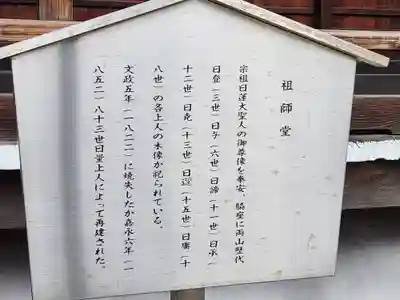 祖師堂
宗祖日蓮大聖人の御尊像を奉安、脇座に両山歴代
日登(三世)日予(六世)日諦(十一世)日承(
十二世)日尭(十三世)日迢(十五世)日(十
八世)の各上人の木像が祀られている。
文政五年(一八二二)に焼失したが嘉永六年(一
八五二)八十三世日量上人によって再建された。